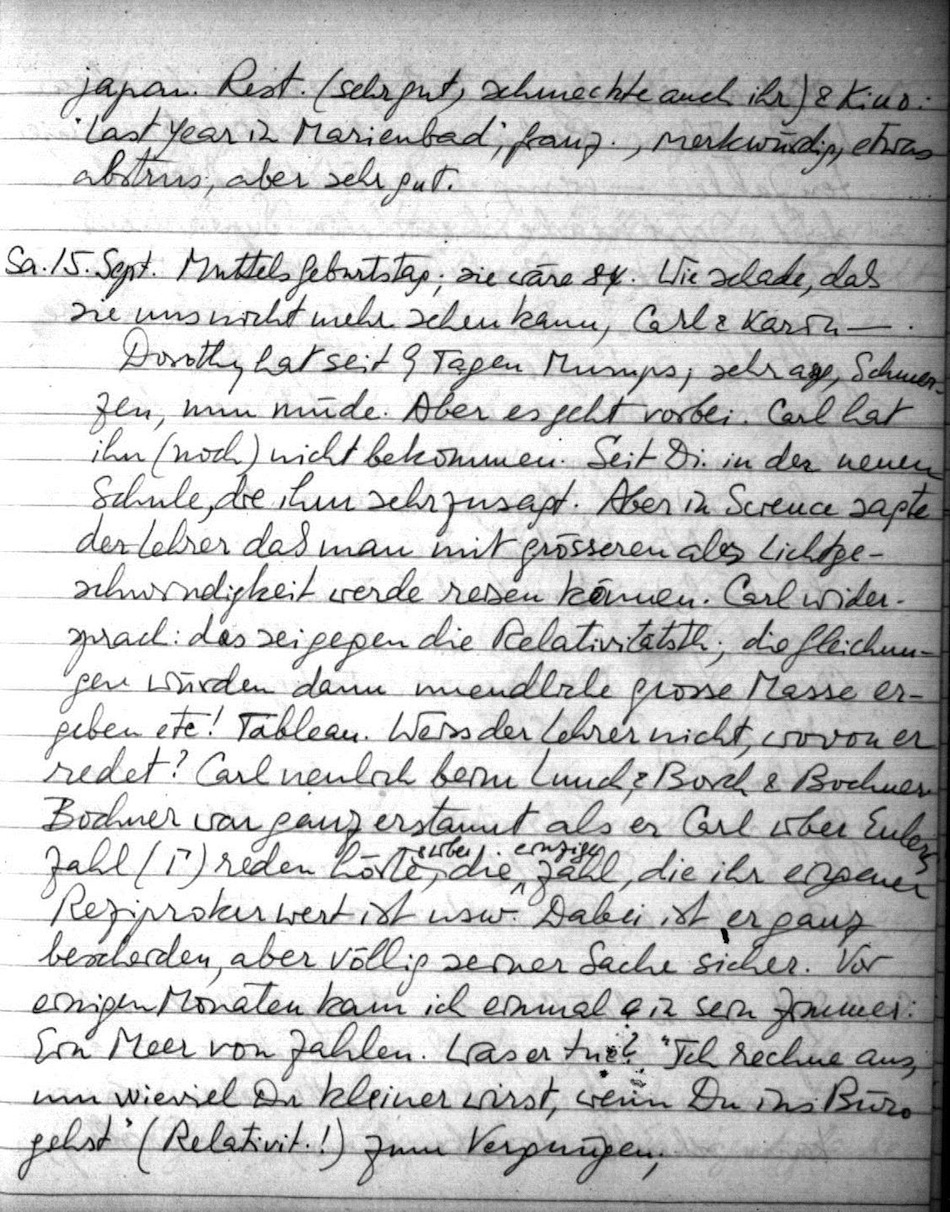 japan. Rest. (sehr gut, schmeckte auch ihr) & Kino:
"Last Year in Marienbad", franz., merkwürdig, etwas
abstrus, aber sehr gut.
Sa. 15. Sept. Muttels Geburtstag; sie wäre 84. Wie schade, das
sie uns nicht mehr sehen kann, Carl & Karin —.
Dorothy hat seit 9 Tagen Mumps; sehr arg, Schmer-
zen, nun müde. Aber es geht vorbei. Carl hat
ihn (noch) nicht bekommen. Seit Di. in der neuen
Schule, die ihm sehr zusagt. Aber in Science sagte
der Lehrer das man mit grösseren als Lichtge-
schwindigkeit werde reisen können. Carl wider-
sprach: das sei gegen die Relativitätsth.; die Gleichun-
gen würden dann unendliche grosse Masse er-
geben etc! Tableau. Weiss der Lehrer nicht, wovon er
redet? Carl neulich beim Lunch & Borch & Bochner
Bochner war ganz erstaunt als er Carl über Eulers
Zahl (Γ) reden hörte, & über die einzige Zahl, die ihr eigener
Reziprokerwert ist usw. Dabei ist er ganz
bescheiden, aber völlig seiner Sache sicher. Vor
einigen Monaten kam ich einmal in sein Zimmer:
Ein Meer von Zahlen. Was er tue? "Ich rechne aus,
um wieviel Du kleiner wirst, wenn Du ins Büro
gehst" (Relativit.!) Zum Vergnügen,